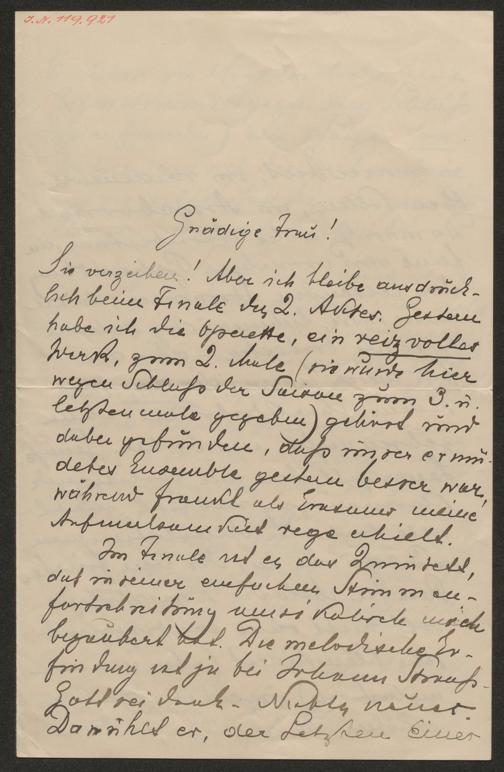 I.N. 119.921
Gnädige Frau!
Sie verzeihen! Aber ich bleibe ausdrück-
lich beim Finale des 2. Aktes. Gestern
habe ich die Operette, ein reizvolles
Werk, zum 2. Male (sie wurde hier
wegen Schluß der Saison zum 3. u.
letztenmale gegeben) gehört und
dabei gefunden, daß unser ermü-
detes Ensemble gestern besser war,
während Frankl als Erasmus meine
Aufmerksamkeit rege erhielt.
Im Finale ist es das Quintett,
das in seiner einfachen Stimmen-
fortschreitung musikalisch mich
bezaubert hat. Die melodische Er-
findung ist ja bei Johann Strauß
Gott sei dank - Nichts neues.
Da wühlt er, der Letzten Einer